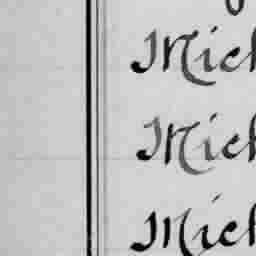 Mich
Mich
Mich